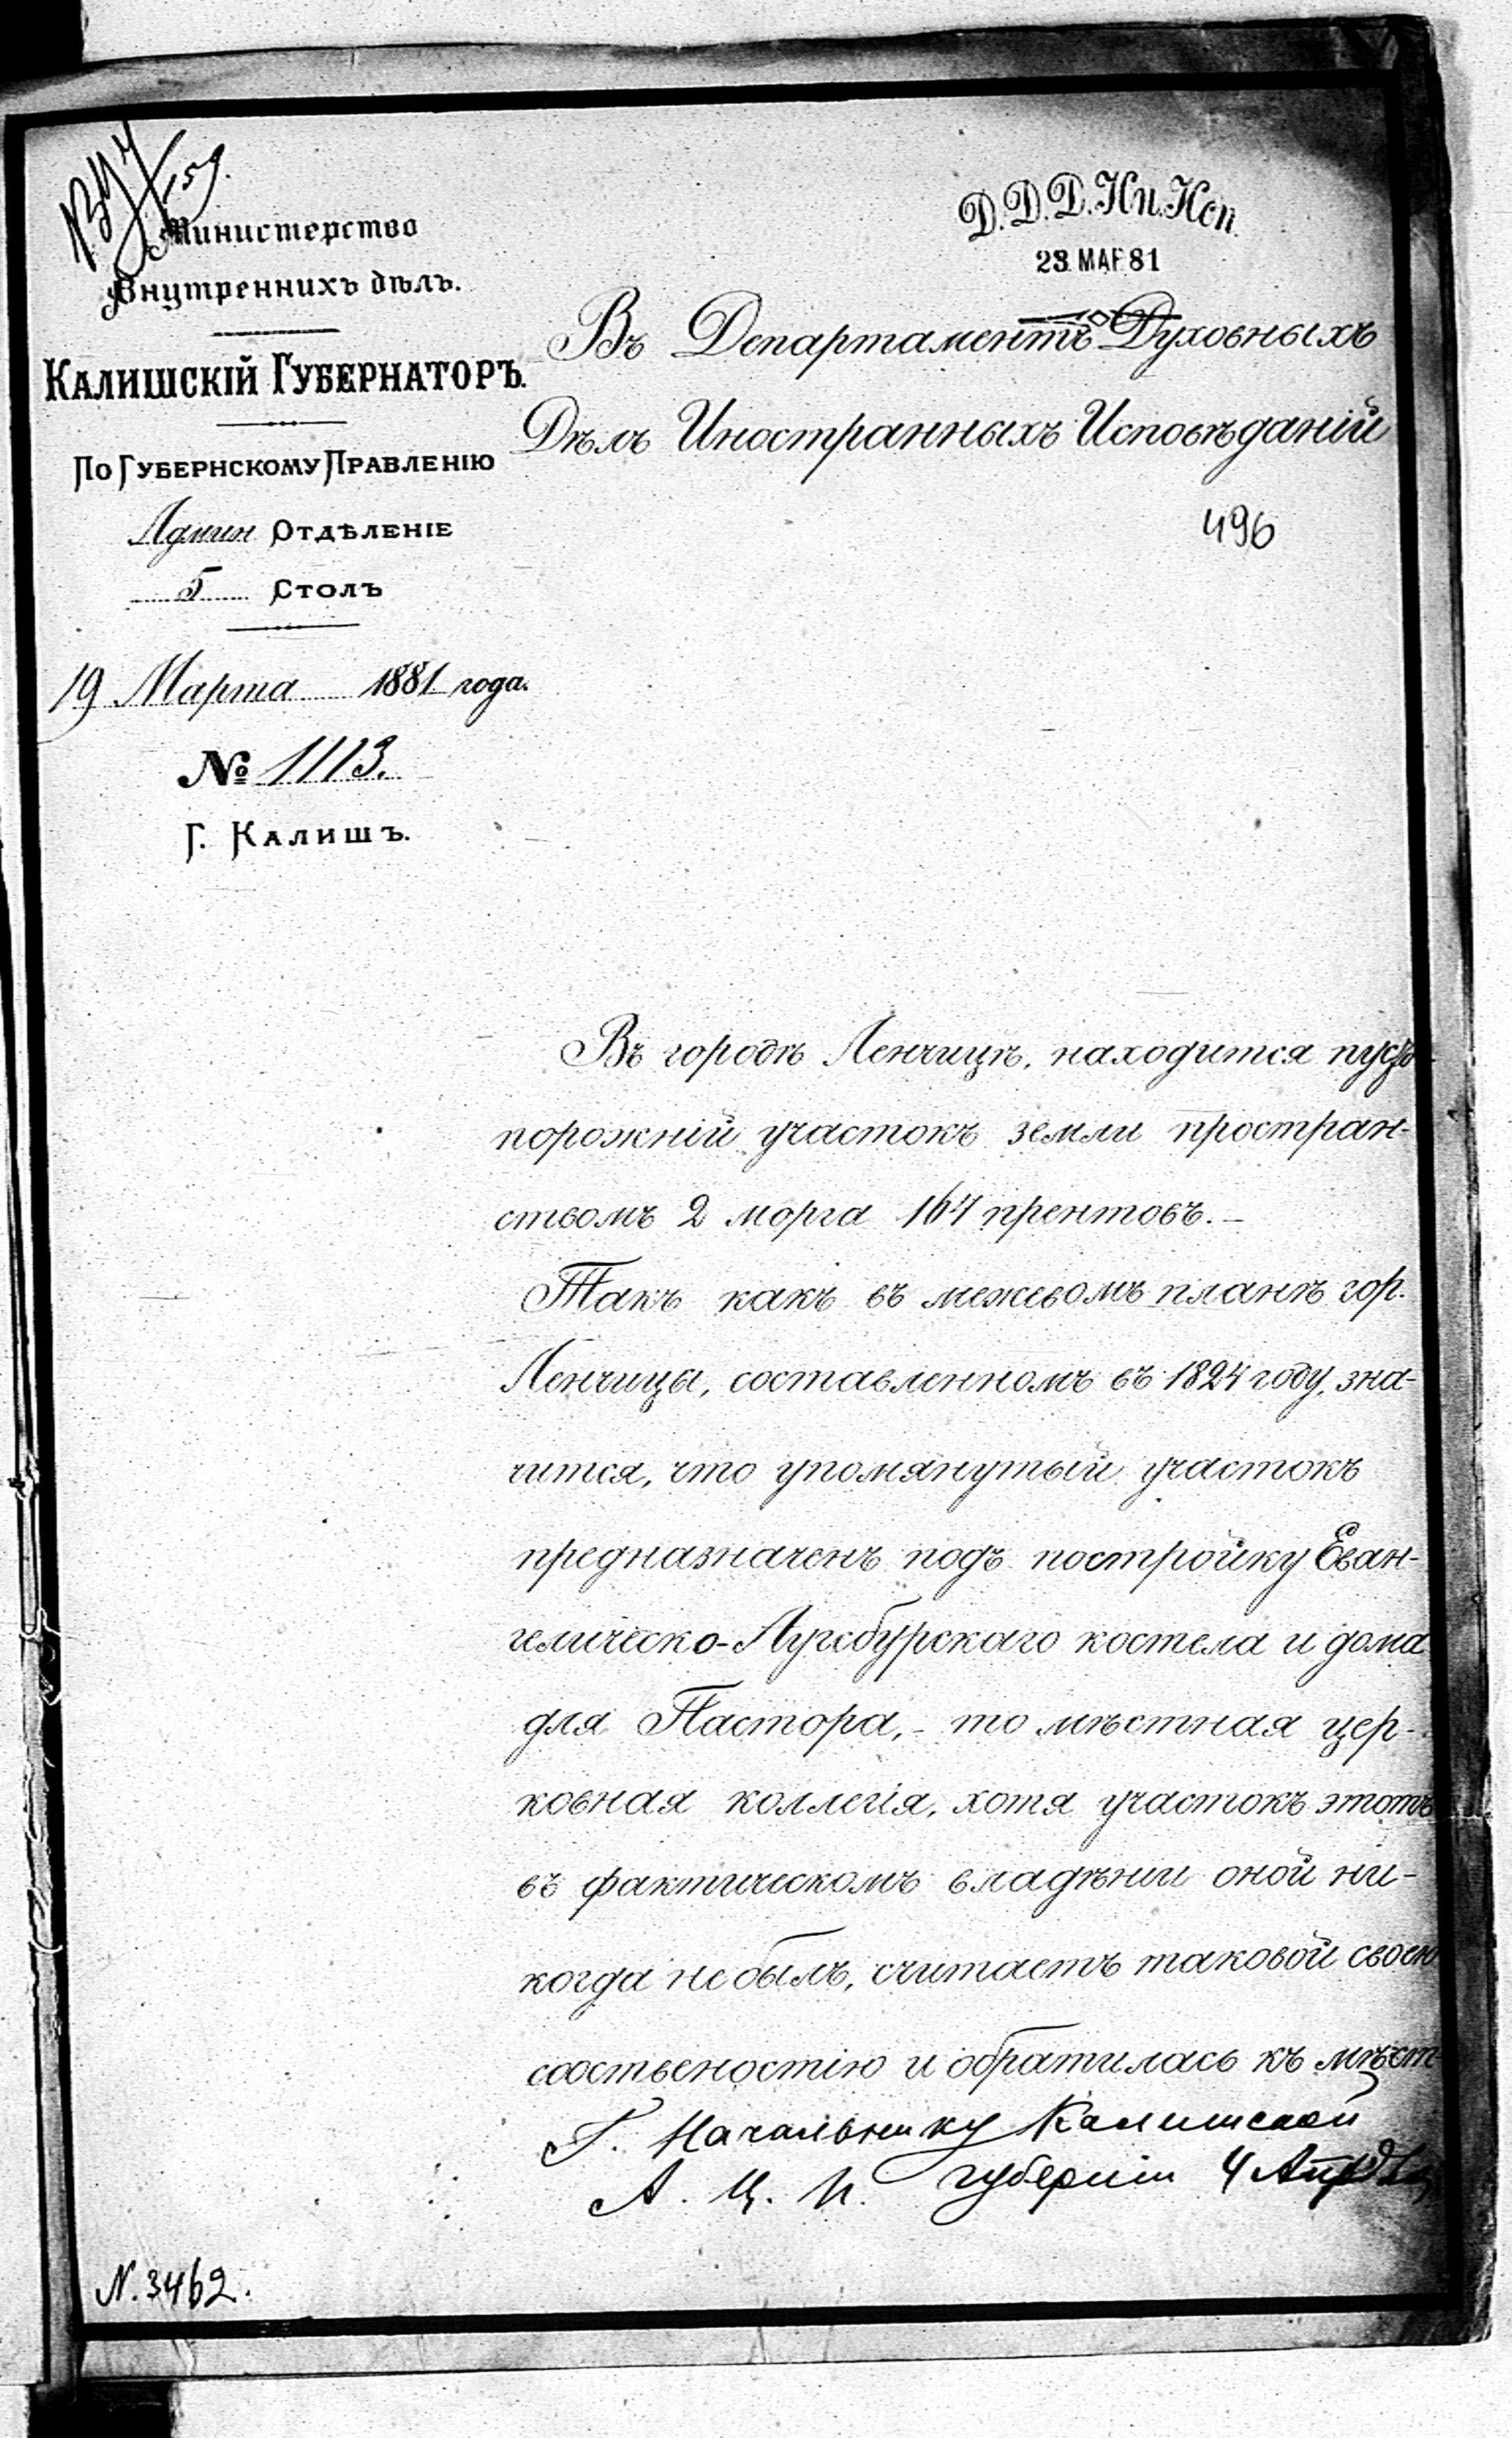 159.
Министерство
Внутреннихъ дѣлъ.
КАЛИШСКІЙ ГУБЕРНАТОРЪ.
ПО ГУБЕРНСКОМУ ПРАВЛЕНІЮ
Админ ОТДѢЛЕНІЕ
5 СТОЛЪ
19 Марта 1881 года.
№ 1113.
Г. КАЛИШЪ.
Д.Д.Д.Ин.Исп.
23 МАР 81
Въ Департаментъ Духовныхъ
Дѣлъ Иностранныхъ Исповѣданій
496
Въ городѣ Ленчицѣ, находится пусто-
порожній участокъ земли простран-
ствомъ 2 морга 164 прентовъ.-
Такъ какъ въ межевомъ планѣ гор.
Ленчицы, составленномъ въ 1824 году, зна-
чится, что упомянутый участокъ
предназначенъ подъ постройку Еван-
гелическо-Аугсбурскаго костела и дома
для Пастора,- то мѣстная цер-
ковная коллегія, хотя участокъ этотъ
въ фактическомъ владѣніи оной ни-
когда не былъ, считаетъ таковой своею
собственостію и обратилась къ мѣст
Г. Начальнику Калишской
А. Ц. П. губерніи 4 Апрѣля
N. 3462.